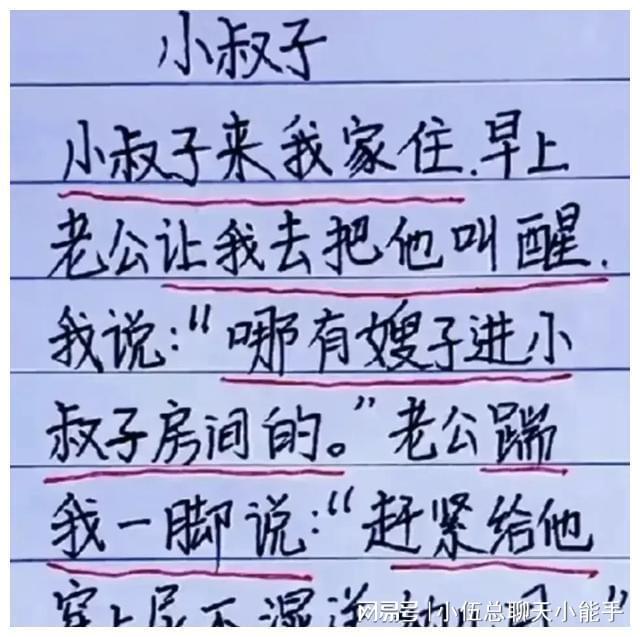 小叔子
小叔子来我家住.早上
老公让我去把他叫醒.
我说:“哪有嫂子进小
叔子房间的。”老公踹
我一脚说:“赶紧给他
穿上尿不湿送
网易号|小伍总聊天小能手